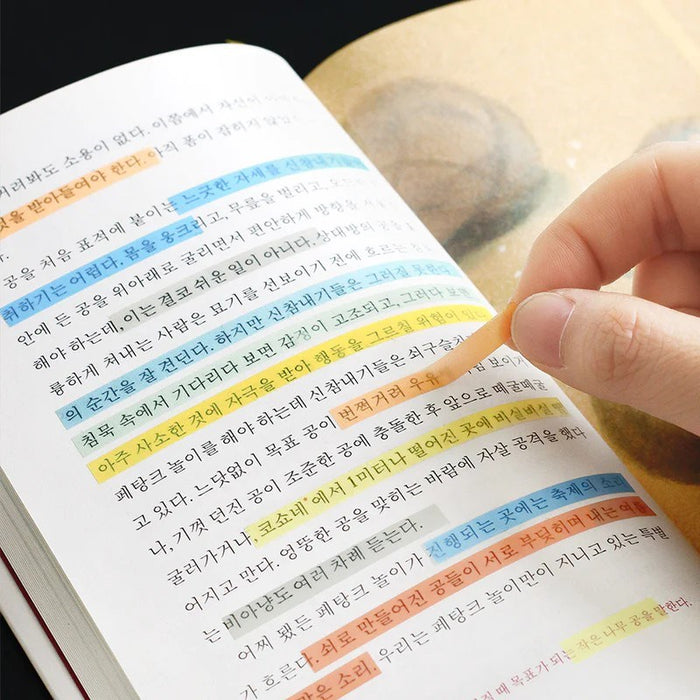 거려봐도 소용이 없다. 이쯤에서 자신이
것을 받아들여야 한다. 아직 폼이 잡히지 않았
공을 처음 표적에 붙이는 느긋한 자세를 신참내기
취하기는 어렵다. 몸을 웅크리고, 무릎을 벌리고,
안에 든 공을 위아래로 굴리면서 편안하게 방향을
해야 하는데, 이는 결코 쉬운 일이 아니다. 상대방의 공을
륭하게 쳐내는 사람은 묘기를 선보이기 전에 흐르는
의 순간을 잘 견딘다. 하지만 신참내기들은 그러질 못한다.
침묵 속에서 기다리다 보면 감정이 고조되고, 그러다 보면
아주 사소한 것에 자극을 받아 행동을 그르칠 위험이 있
페탕크 놀이를 해야 하는데 신참내기들은 쇠구슬
고 있다. 느닷없이 목표 공이 번쩍거려 우유 보이거
나, 기껏 던진 공이 조준한 공에 충돌한 후 앞으로 떼굴떼굴
굴러가거나, 코쇼네*에서 1미터나 떨어진 곳에 비실비실
어지고 만다. 엉뚱한 공을 맞히는 바람에 자살 공격을 했다
는 비아냥도 여러 차례 듣는다.
어찌 됐든 페탕크 놀이가 진행되는 곳에는 축제의 소리
가 흐른다. 쇠로 만들어진 공들이 서로 부딪히며 내는 여름
같은 소리. 우리는 페탕크 놀이만이 지니고 있는 특별
때 목표가 되는 작은 나무 공을 말한다.